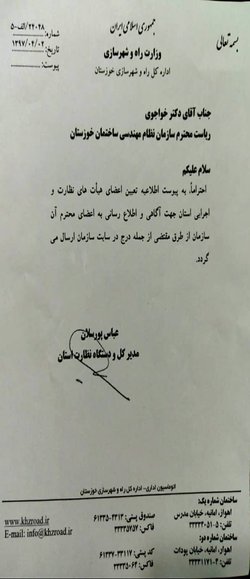 بسمه تعالی
جمهوری اسلامی ایران
وزارت راه و شهرسازی
اداره کل راه و شهرسازی خوزستان
شماره: ۲۲۰۲۸/الف-۵۰
تاریخ: ۱۳۹۷/۰۴/۰۲
پیوست:
جناب آقای دکتر خواجوی
ریاست محترم سازمان نظام مهندسی ساختمان خوزستان
سلام علیکم
احتراماً، به پیوست اطلاعیه تعیین اعضای هیأت های نظارت و
اجرایی استان جهت آگاهی و اطلاع رسانی به اعضای محترم آن
سازمان از طرق مقتضی از جمله درج در سایت سازمان ارسال می
گردد.
عباس پورسلان
مدیر کل و دستگاه نظارت استان
اتوماسیون اداری- اداره کل راه و شهرسازی خوزستان
ساختمان شماره یک:
اهواز، امانیه، خیابان مدرس
صندوق پستی: ۳۳۱۳-۶۱۳۳۵
www.khzroad.ir
فاکس: ۳۳۳۳۵۷۵۲
E-mail: info@khzroad.ir
ساختمان شماره دو:
اهواز، امانیه، خیابان پودات
کد پستی: ۳۳۱۱۷-۶۱۳۳۷
تلفن: ۴-۳۳۳۳۱۱۷۱
فاکس: ۳۳۳۳۵۰۶۴